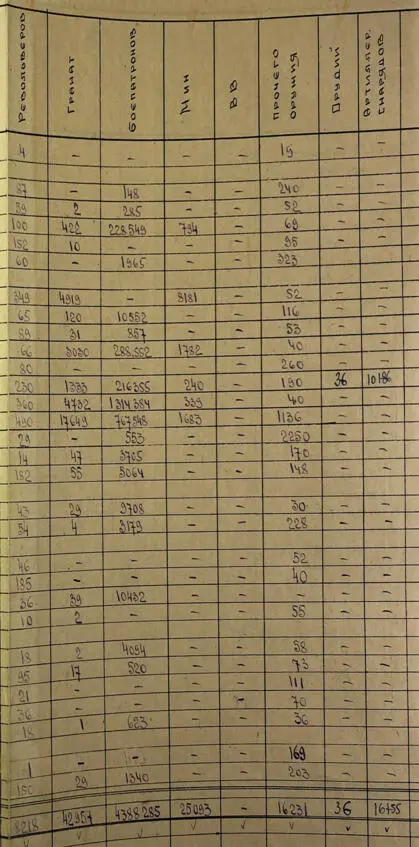 Револьверов Гранат Боепатронов Мин ВВ Прочего оружия Орудий Артиллер. снарядов
4 – – – – 15 – –
87 – 148 – – 240 – –
59 2 285 – – 52 – –
100 422 228549 794 – 69 – –
152 10 – – – 95 – –
60 – 1965 – – 323 – –
349 4919 – 3181 – 52 – –
65 120 10552 – – 116 – –
59 31 857 – – 53 – –
66 3030 288.552 1732 – 40 – –
80 – – – – 260 – –
230 1333 216355 240 – 190 36 10186
360 4732 1314384 339 – 40 – –
490 17649 767548 1683 – 1136 – –
29 – 553 – – 2250 – –
14 47 3705 – – 170 – –
152 55 5064 – – 148 – –
43 29 9708 – – 30 – –
54 4 3179 – – 228 – –
46 – – – – 52 – –
185 – – – – 40 – –
36 39 10432 – – – – –
10 2 – – – 55 – –
18 2 4094 – – 58 – –
95 17 520 – – 73 – –
21 – – – – 111 – –
36 – – – – 70 – –
18 1 623 – – 36 – –
1 – – – – 169 – –
150 29 1340 – – 203 – –
8218 42957 4388285 25093 – 16231 36 16755